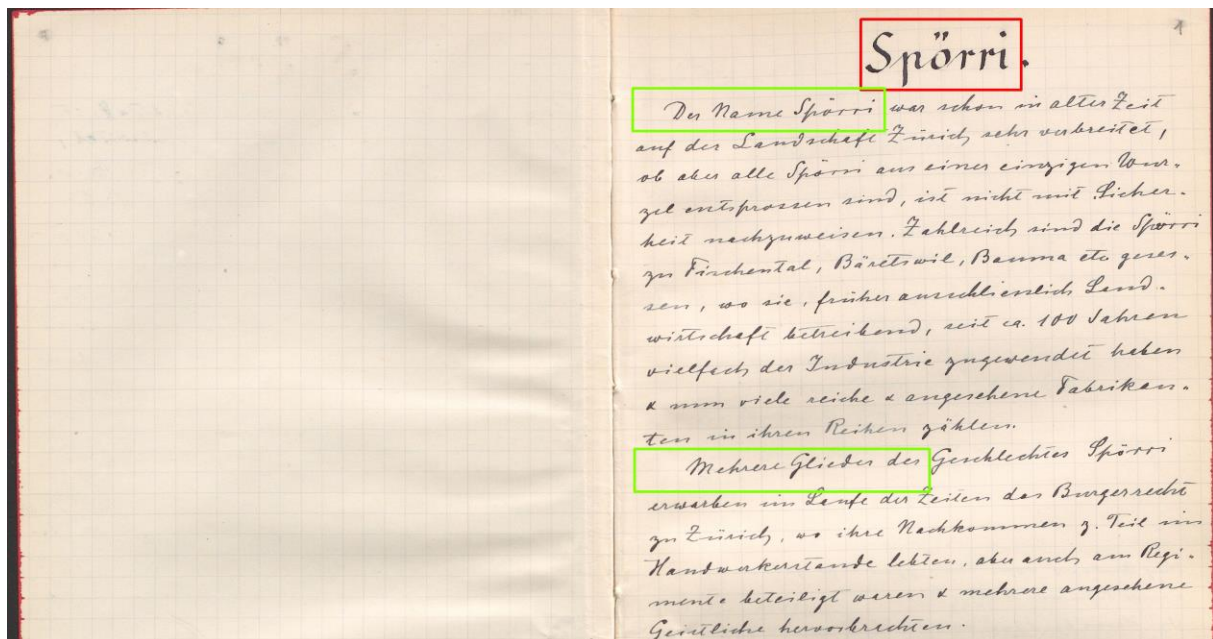 1
Spörri.
Der Name Spörri war schon in alter Zeit
auf der Landschaft Zürich sehr verbreitet,
ob aber alle Spörri aus einer einzigen Wur-
zel entsprossen sind, ist nicht mit Sicher-
heit nachzuweisen. Zahlreich sind die Spörri
zu Fischental, Bäretswil, Bauma etc geses-
sen, wo sie, früher ausschliesslich Land-
wirtschaft betreibend, seit ca. 100 Jahren
vielfach der Industrie zugewendet haben
& nun viele reiche & angesehene Fabrikan-
ten in ihren Reihen zählen.
Mehrere Glieder des Geschlechtes Spörri
erwarben im Laufe der Zeiten das Burgerrecht
zu Zürich, wo ihre Nachkommen z. Teil im
Handwerkerstande lebten, aber auch am Regi-
mente beteiligt waren & mehrere angesehene
Geistliche hervorbrachten.